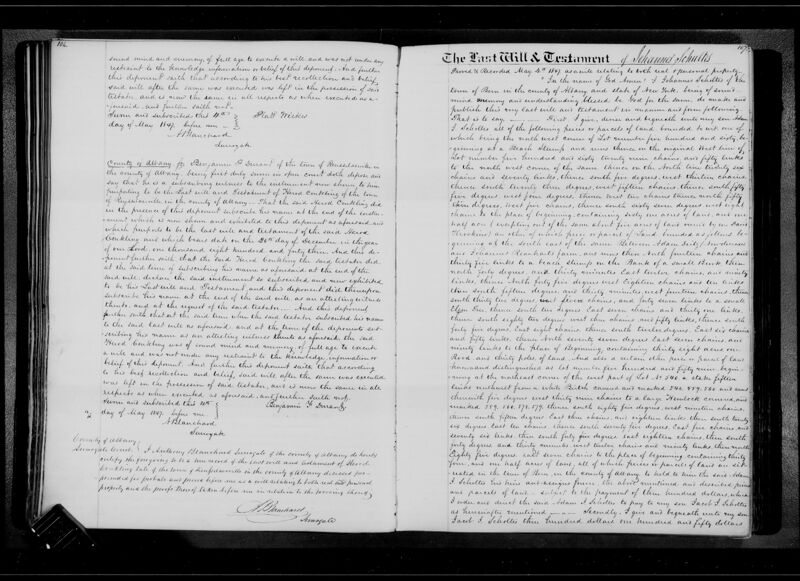 106
sound mind and memory, of full age to execute a will and was not under any
restraint to the knowledge information or belief of this deponent. And further
this deponent saith that according to his best recollection and belief,
said will after the same was executed was left in the possession of said
testator, and is now the same in all respects as when executed as a-
foresaid and further saith not.
Sworn and subscribed this 10th
day of May 1847. before me
A Blanchard
Surrogate
County of Albany ss Benjamin F Durant of the town of Rensselaerville in
the county of Albany being first duly sworn in open court doth depose and
say that he is a subscribing witness to the instrument now shown to him
purporting to be the last will and Testament of Heard Conkling of the town
of Rensselaerville in the county of Albany. That the said Heard Conkling did
in the presence of this deponent subscribe his name at the end of the instru-
ment which is now shown and exhibited to this deponent as aforesaid and
which purports to be the last will and testament of the said Heard
Conkling and which bears date on the 26th day of December in the year
of our Lord one thousand eight hundred and forty three. And this de-
ponent further saith that the said Heard Conkling the said testator did
at the said time of subscribing his name as aforesaid at the end of the
said will, declare the said instrument so subscribed and now exhibited
to be his Last will and Testament, and this deponent did thereupon
subscribe his name at the end of the said will, as an attesting witness
thereto, and at the request of the said testator. And this deponent
further saith that at the said time when the said testator subscribed his name
to the said last will as aforesaid, and at the time of the deponents sub-
scribing his name as an attesting witness thereto as aforesaid, the said
Heard Conkling was of sound mind and memory, of full age to execute
a will and was not under any restraint to the knowledge, information or
belief of this deponent. And further this deponent saith that according
to his best recollection and belief, said will after the same was executed
was left in the possession of said testator, and is now the same in all
respects as when executed as aforesaid, and further saith not.
Sworn and subscribed this 10th
day of May 1847. before me
Benjamin F Durant
A Blanchard
Surrogate
County of Albany
Surrogate Court. I Anthony Blanchard Surrogate of the county of Albany do hereby
certify the foregoing to be a true record of the last will and testament of Heard
Conkling late of the town of Rensselaerville in the county of Albany deceased pro-
pounded for probate and proved before me as a will relating to both real and personal
property and the proofs thereof taken before me in relation to the proving thereof
A Blanchard
Surrogate
107
The Last Will & Testament of Johannis Scholtes
Proved & Recorded May 4th 1847 as a will relating to both real & personal property
"In the name of God Amen" I Johannis Scholtes of the
town of Bern in the county of Albany and state of New York, being of sound
mind memory and understanding blessed be God for the same, do make and
publish this my last will and testament in manner and form following
That is to say First, I give, devise and bequeath unto my son Adam
I Scholtes all of the following pieces or parcels of land bounded to wit: one of
which being the north west corner of Lot number five hundred and sixty be-
ginning at a Beach Stump and runs thence on the original West line of
Lot number five hundred and sixty twenty nine chains and fifty links
to the north west corner of the same thence on the North line twenty six
chains and seventy links, thence south five degrees west thirteen chains,
thence south twenty three degrees, west fifteen chains, thence south fifty
five degrees, west four degrees, thence West two chains thence north fifty
three degrees, west five chains, thence south sixty seven degrees west eight
chains to the place of beginning, containing sixty one acres of land, and one
half acre (excepting out of the same about five acres of land
ginning at the south east of the same Between Adam
thirty five links to a beach stump on the Bank of a small Brook then
north forty degrees and thirty minutes East twelve chains, and ninety
links, thence South forty five degrees west Eighteen chains and ten links
then south fifteen degrees and thirty minutes west fourteen chains then
south thirty two degrees, west seven chains, and forty seven links to a small
Elfin tree, thence south ten degrees East seven chains and thirty one links,
thence south eighty two degrees west then chains and fifty links, thence south
forty five degrees East eight chains thence south twelve degrees, East six chains
and fifty links, thence North seventy seven degrees East seven chains and
ninety links to the place of Beginning, containing thirty eight acres one
Rood and thirty poles of land. And also a certain other piece or parcel of land
known and distinguished as Lot number five hundred and fifty nine begin-
ning at the northeast corner of the west part of Lot No 580 a stake fifteen
links northwest from a white Birch corner and marked 580, 579, 560 and runs
thence fifth five degrees west thirty nine chains to a large Hemlock corner and
marked, 559, 560, 578, 579, thence south eighty five degrees, west nineteen chains,
thence south fifteen degrees East then chains and eighteen links, then south thirty
six degrees East ten chains, thence south seventy five degrees, East five chains and
seventy six links, then south forty five degrees East eighteen chains, then south
forty degrees and thirty minutes west twelve chains and ninety links then north
Eighty five degrees, east seven chains to the place of beginning containing thirty
four, and one half acres of land, all of which pieces or parcels of land are sit-
uated in the town of Bern in the county of Albany to hold to him the said Adam
I Scholtes his heirs and assigns forever, the above mentioned and described pieces
and parcels of land subject to the payment of three hundred dollars, which
I order and direct the said Adam I Scholtes to pay to my son Jacob I Scholtes
as hereinafter mentioned Secondly, I give and bequeath unto my son
Jacob I Scholtes three hundred dollars one hundred and fifty dollars